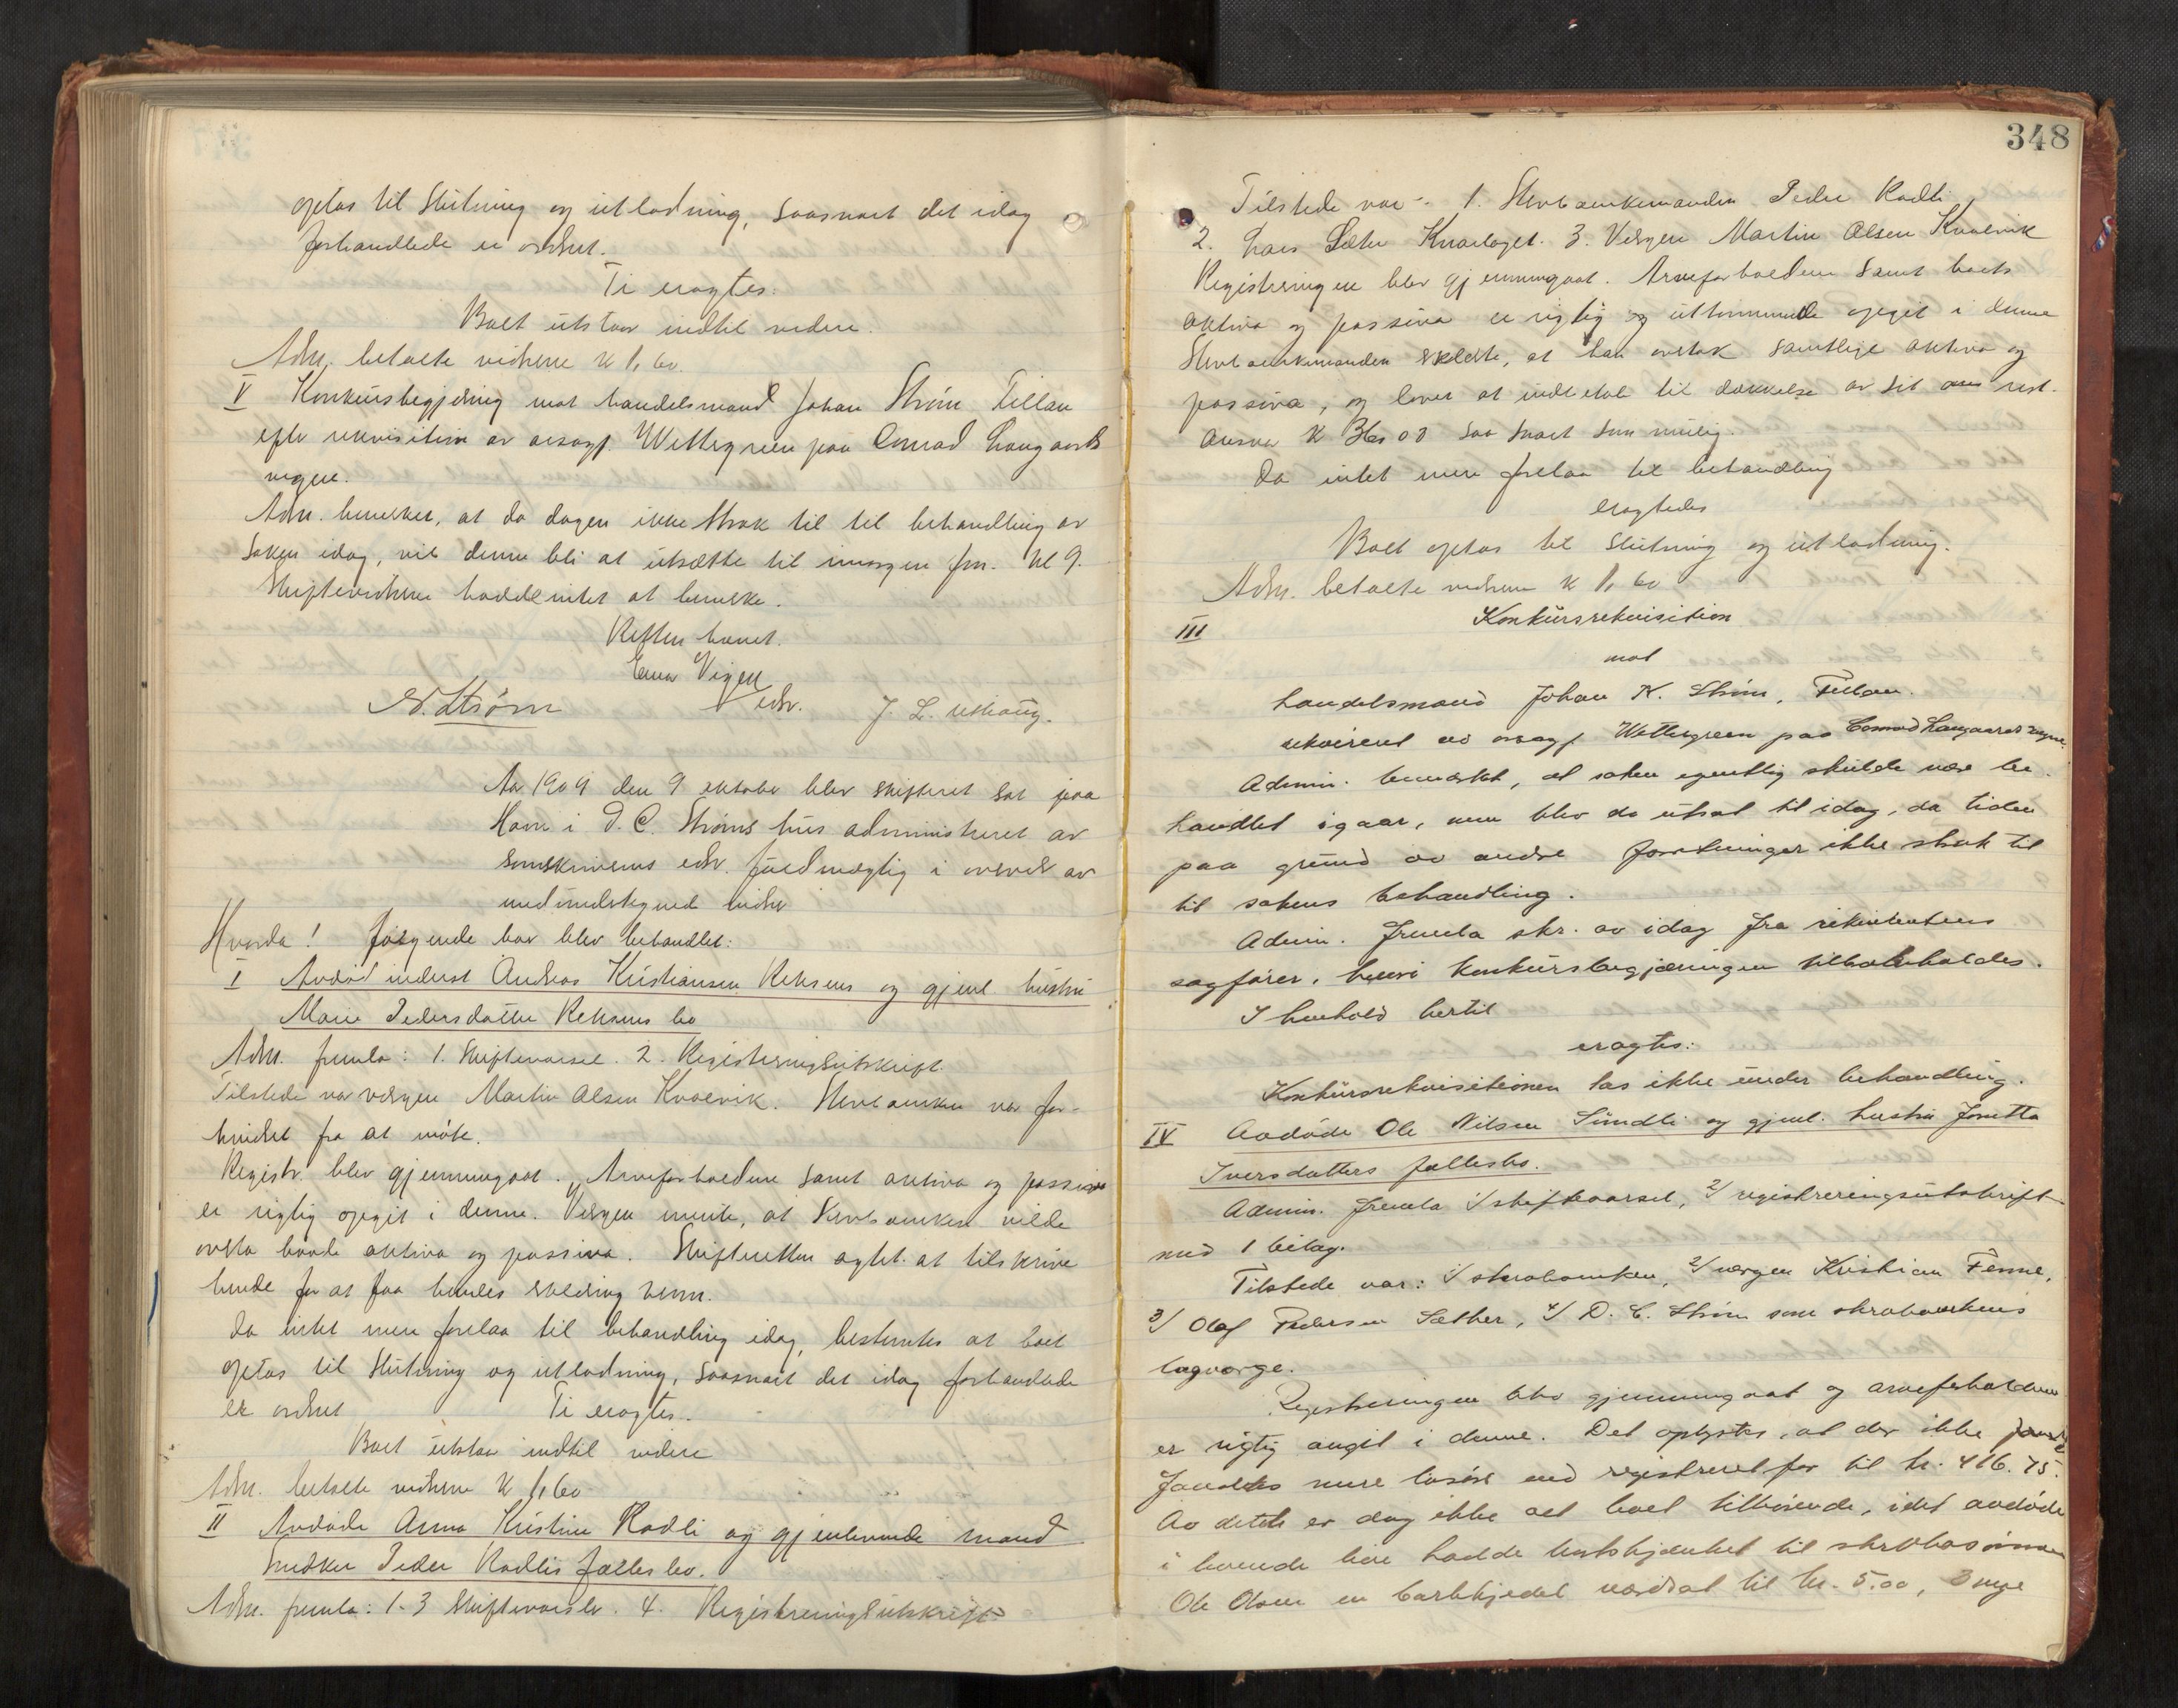 optas til Slutning og utlodning, saasnart det idag
forhandlede er ordnet.
Ti eragtes:
Boet utstaar indtil videre.
Adm. betalte vidnene K 1,60.
V Konkursbegjæring mot handelsmand Johan Strøm Fillan
efter rekvisition av orsagf. Wettergreen paa Conrad Langaards
vegne.
Adm. bemerker, at da dagen ikke strak til til behandling av
saken idag, vil denne bli at utsætte til imorgen fm. kl 9.
Skiftevidnene hadde intet at bemerke.
Retten hævet.
Einar Vigen
edsv.
N. Strøm J. L. Ulshaug.
Aar 1909 den 9 oktober blev skifteret sat paa
Havn i D. C. Strøms hus administreret av
sorenskriverens edsv. fuldmægtig i overvær av
medundertegnede vidner
Hvorda! følgende boer blev behandlet:
I Avdød inderst Andreas Kristiansen Reksens og gjenl. hustru
Marie Pedersdatter Reksens bo
Adm. fremla: 1. Skiftevarsel. 2. Registreringsutskrift.
Tilstede var vergen Martin Olsen Kvalvik. Stervboenken var for-
hindret fra at møte.
Registr. blev gjennemgaat. Arveforholdene samt aktiva og passiva
er rigtig opgit i denne. Vergen mente, at Stervboenken vilde
overta baade aktiva og passiva. Skifteretten agtet at tilskrive
hende for at faa hendes erklæring herom.
Da intet mere forelaa til behandling idag, bestemtes at boet
optas til Slutning og utlodning, saasnart det idag forhandlede
er ordnet Ti eragtes:
Boet utstaar indtil videre
Adm. betalte vidnene K 1,60
II Avdøde Anna Kristine Rødli og gjenlevende mand
Snedker Peder Rødlis fællesbo.
Adm. fremla: 1-3 Skiftevarsler. 4. Registreringsutskrift
348
Tilstede var: 1. Stervboenkemanden Peder Rødli
2. Lars Sæter Knarlaget. 3. Vergen Martin Olsen Kvalvik
Registreringen blev gjennemgaat. Arveforholdene samt boets
aktiva og passiva er rigtig og uttømmende opgit i denne
Stervboenkemanden erklærte, at han overtok samtlige aktiva og
passiva, og lover at indbetale til dækkelse av sit rest.
ansvar K saa snart som mulig.
Da intet mere forelaa til behandling
eragtedes
Boet optas til Slutning og utlodning.
Adm. betalte vidnene K 1,60
III Konkursrekvisition
mot
handelsmand Johan N. Strøm, Fillan.
rekvireret av orsagf. Wettergreen paa Conrad Langaards vegne.
Admin. bemerket, at saken egentlig skulde være be-
handlet igaar, men blev da utsat til idag, da tiden
paa grund av andre forretninger ikke strak til
til sakens behandling.
Admin. fremla skr. av idag fra rekvirentens
sagfører, hvori konkursbegjæringen tilbakekaldes.
I henhold hertil
eragtes:
Konkursrekvisitionen tas ikke under behandling.
IV Avdøde Ole Nilsen Sundli og gjenl. hustru Jonetta
Iversdatters fællesbo.
Admin. fremla 1/ skiftevarsel, 2/ registreringsutskrift
med 1 bilag.
Tilstede var: 1/ stervboenken, 2/ vergen Kristian Fenne,
3/ Olaf Pedersen Sæther, 4/ D. C. Strøm som stervboenkens
lagverge.
Registreringen blev gjennemgaat og arveforholdene
er rigtig angit i denne. Det oplystes, at der ikke
fandtes mere løsøre end registreret for til kr. 416.75.
Av dette er dog ikke alt boet tilhørende, idet avdøde
i levende live hadde bortskjænket til stervbosønnen
Ole Olsen en barkekjedel værdsat til kr. 5.00, 3 nye